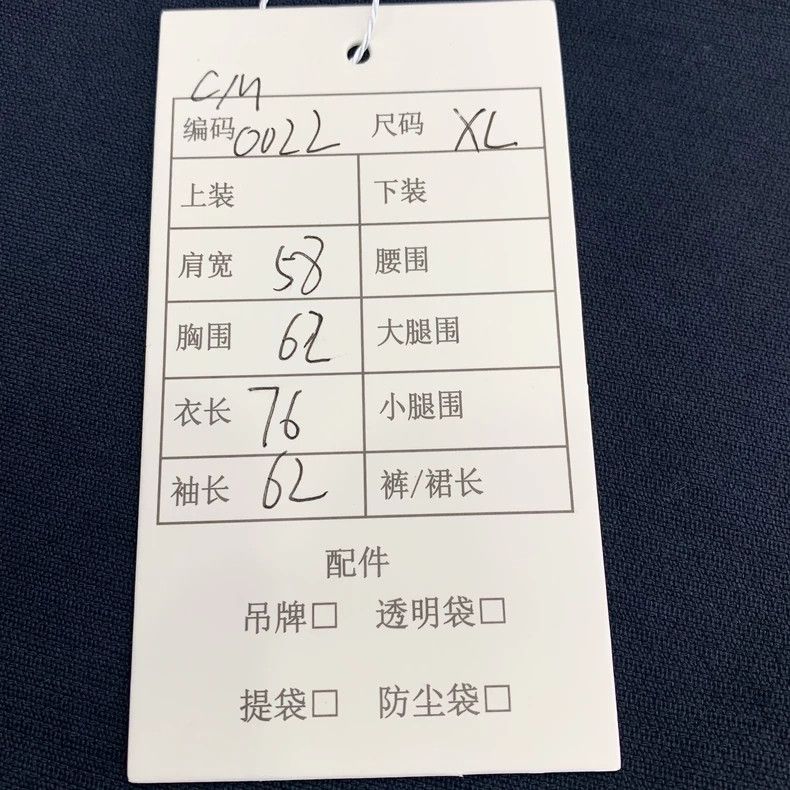 C/M
编码 0022 尺码 XL
上装 下装
肩宽 58 腰围
胸围 62 大腿围
衣长 76 小腿围
袖长 62 裤/裙长
配件
吊牌□ 透明袋□
提袋□ 防尘袋□